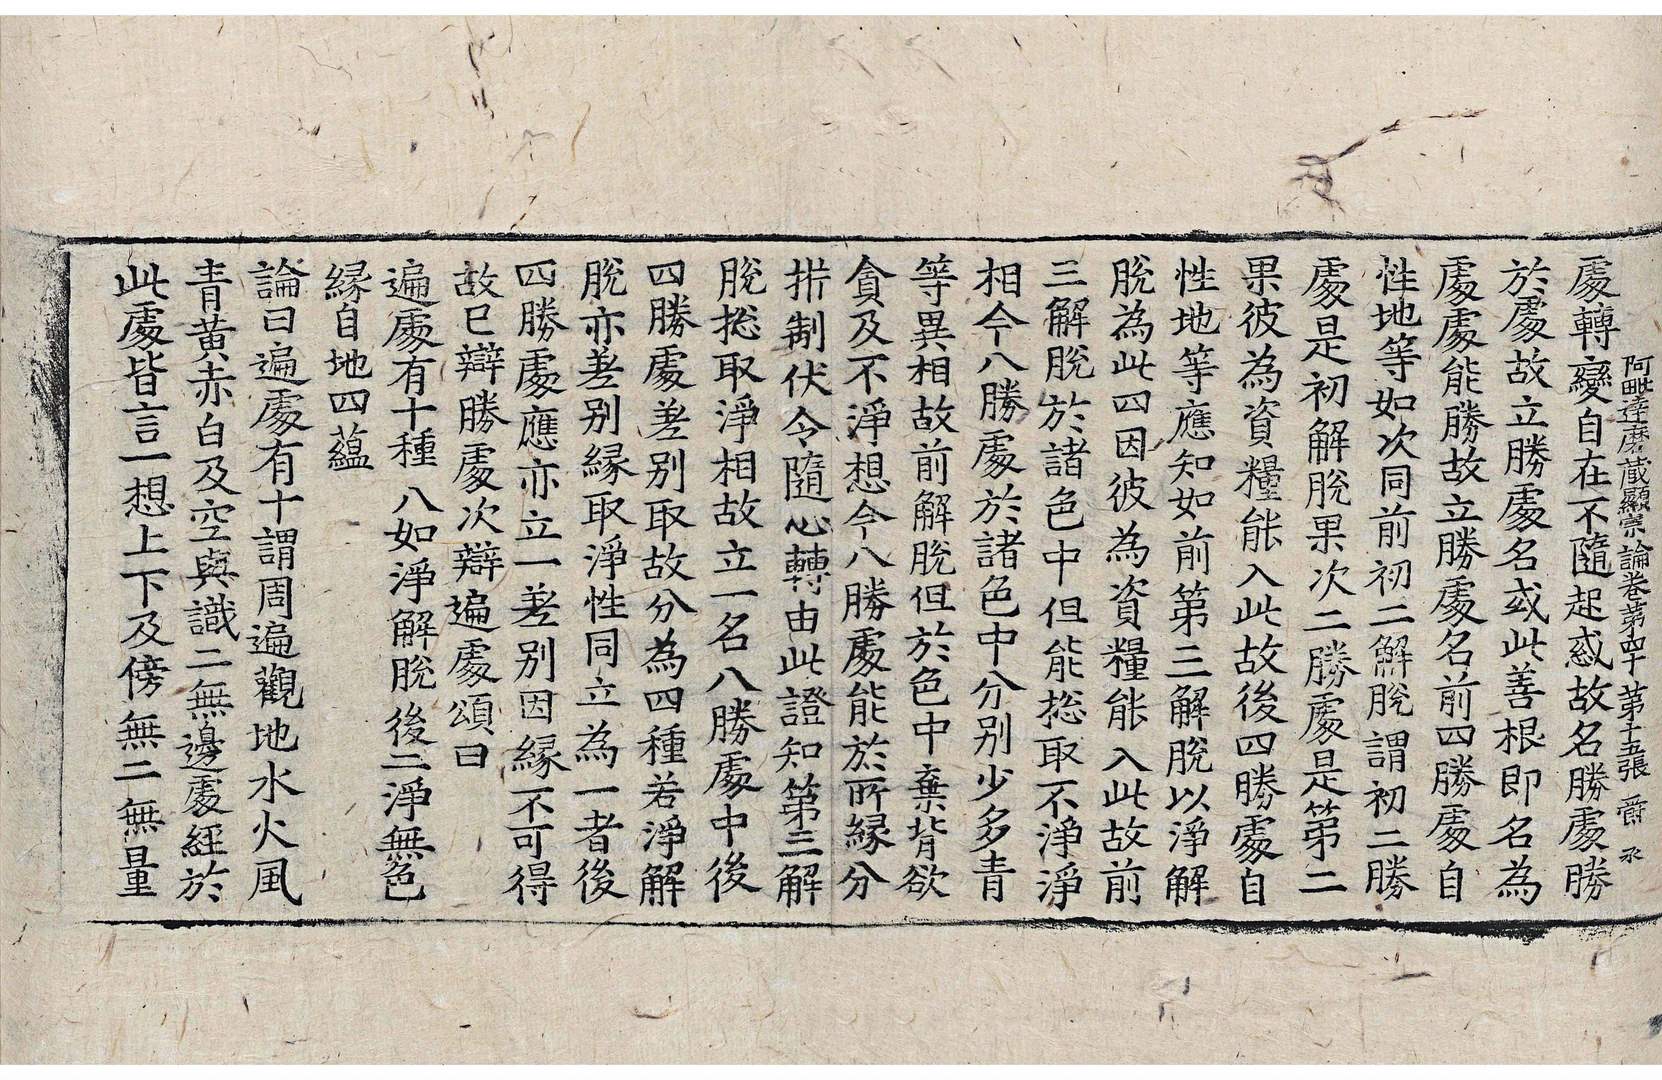 阿毗達磨藏顯宗論卷第四十 第十五張 爵
處轉變自在不隨起惑故名勝處勝
於處故立勝處名或此善根即名為
處處能勝故立勝處名前四勝處自
性地等如次同前初二解脫謂初二勝
處是初解脫果次二勝處是第二
果彼為資糧能入此故後四勝處自
性地等應知如前第三解脫以淨解
脫為此四因彼為資糧能入此故前
三解脫於諸色中但能捴取不淨淨
相今八勝處於諸色中分別少多青
等異相故前解脫但於色中棄背欲
貪及不淨想今八勝處能於所緣分
㭊制伏令隨心轉由此證知第三解
脫捴取淨相故立一名八勝處中後
四勝處差別取故分為四種若淨解
脫亦差別緣取淨性同立為一者後
四勝處應亦立一差別因緣不可得
故已辯勝處次辯遍處頌曰
遍處有十種 八如淨解脫 後二淨無色
緣自地四蘊
論曰遍處有十謂周遍觀地水火風
青黃赤白及空與識二無邊處經於
此處皆言一想上下及傍無二無量